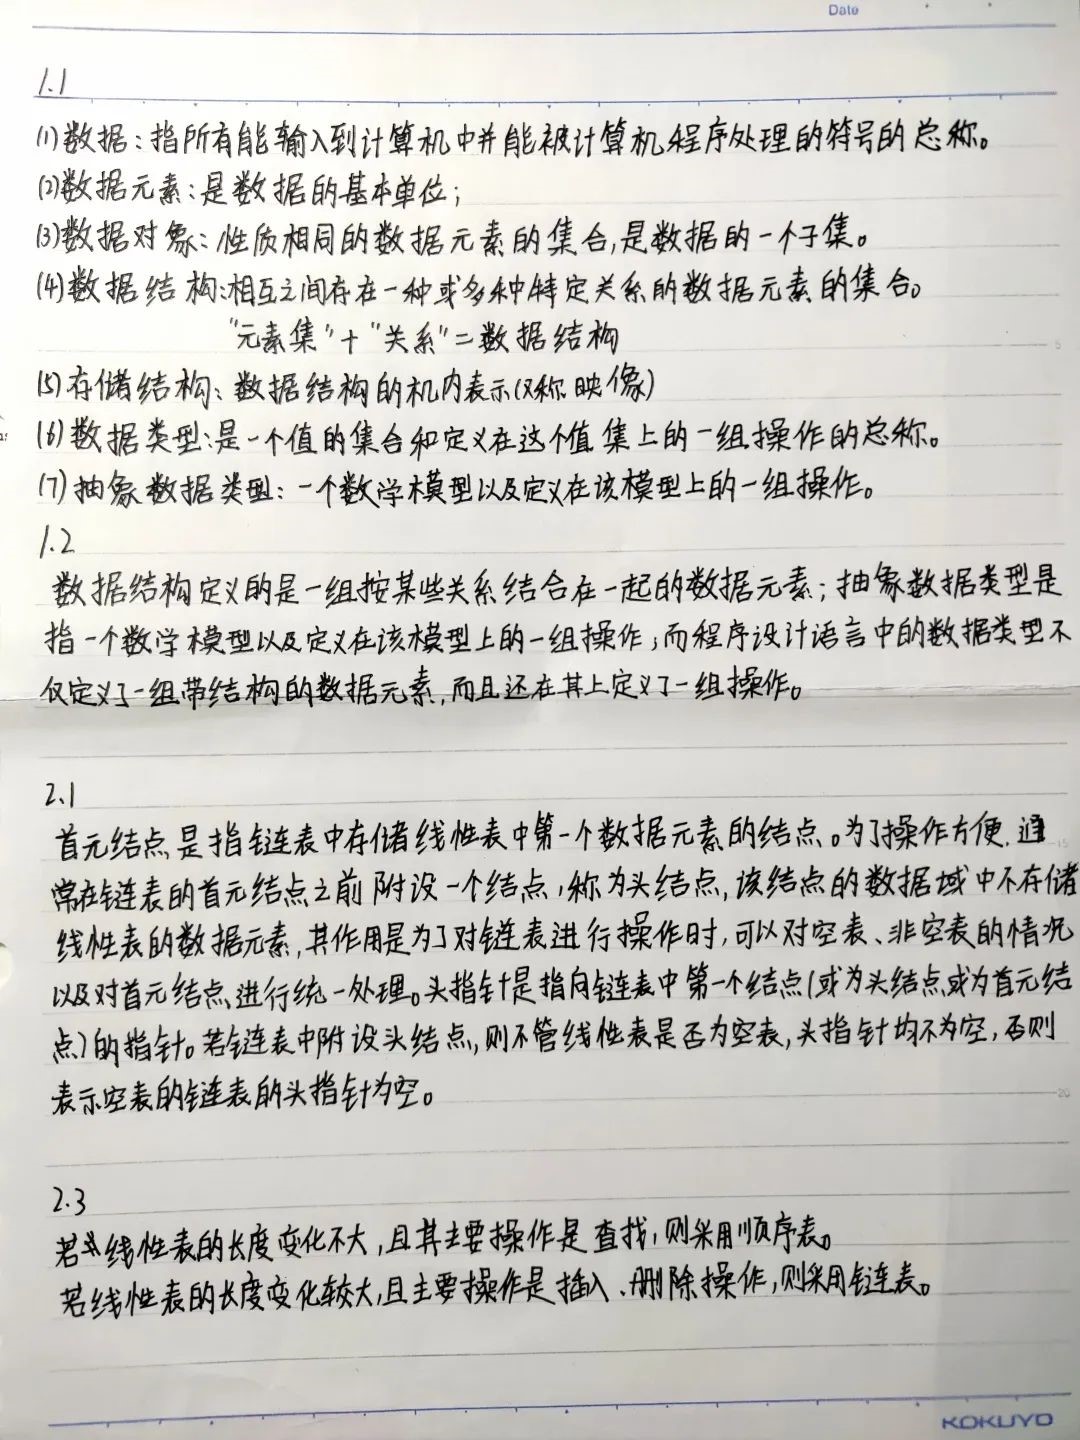 Date
1.1
(1)数据：指所有能输入到计算机中并能被计算机程序处理的符号的总称。
(2)数据元素：是数据的基本单位；
(3)数据对象：性质相同的数据元素的集合，是数据的一个子集。
(4)数据结构：相互之间存在一种或多种特定关系的数据元素的集合。
"元素集"+"关系"=数据结构
(5)存储结构：数据结构的机内表示(又称映像)
(6)数据类型：是一个值的集合和定义在这个值集上的一组操作的总称。
(7)抽象数据类型：一个数学模型以及定义在该模型上的一组操作。
1.2
数据结构定义的是一组按某些关系结合在一起的数据元素；抽象数据类型是
指一个数学模型以及定义在该模型上的一组操作，而程序设计语言中的数据类型不
仅定义了一组带结构的数据元素，而且还在其上定义了一组操作。
2.1
首元结点是指链表中存储线性表中第一个数据元素的结点。为了操作方便，通
常在链表的首元结点之前附设一个结点，称为头结点，该结点的数据域中不存储
线性表的数据元素，其作用是为了对链表进行操作时，可以对空表、非空表的情况
以及对首元结点进行统一处理。头指针是指向链表中第一个结点(或为头结点或为首元结
点)的指针。若链表中附设头结点，则不管线性表是否为空表，头指针均不为空，否则
表示空表的链表的头指针为空。
2.3
若线性表的长度变化不大，且其主要操作是查找，则采用顺序表。
若线性表的长度变化较大，且主要操作是插入、删除操作，则采用链表。
KOKUYO